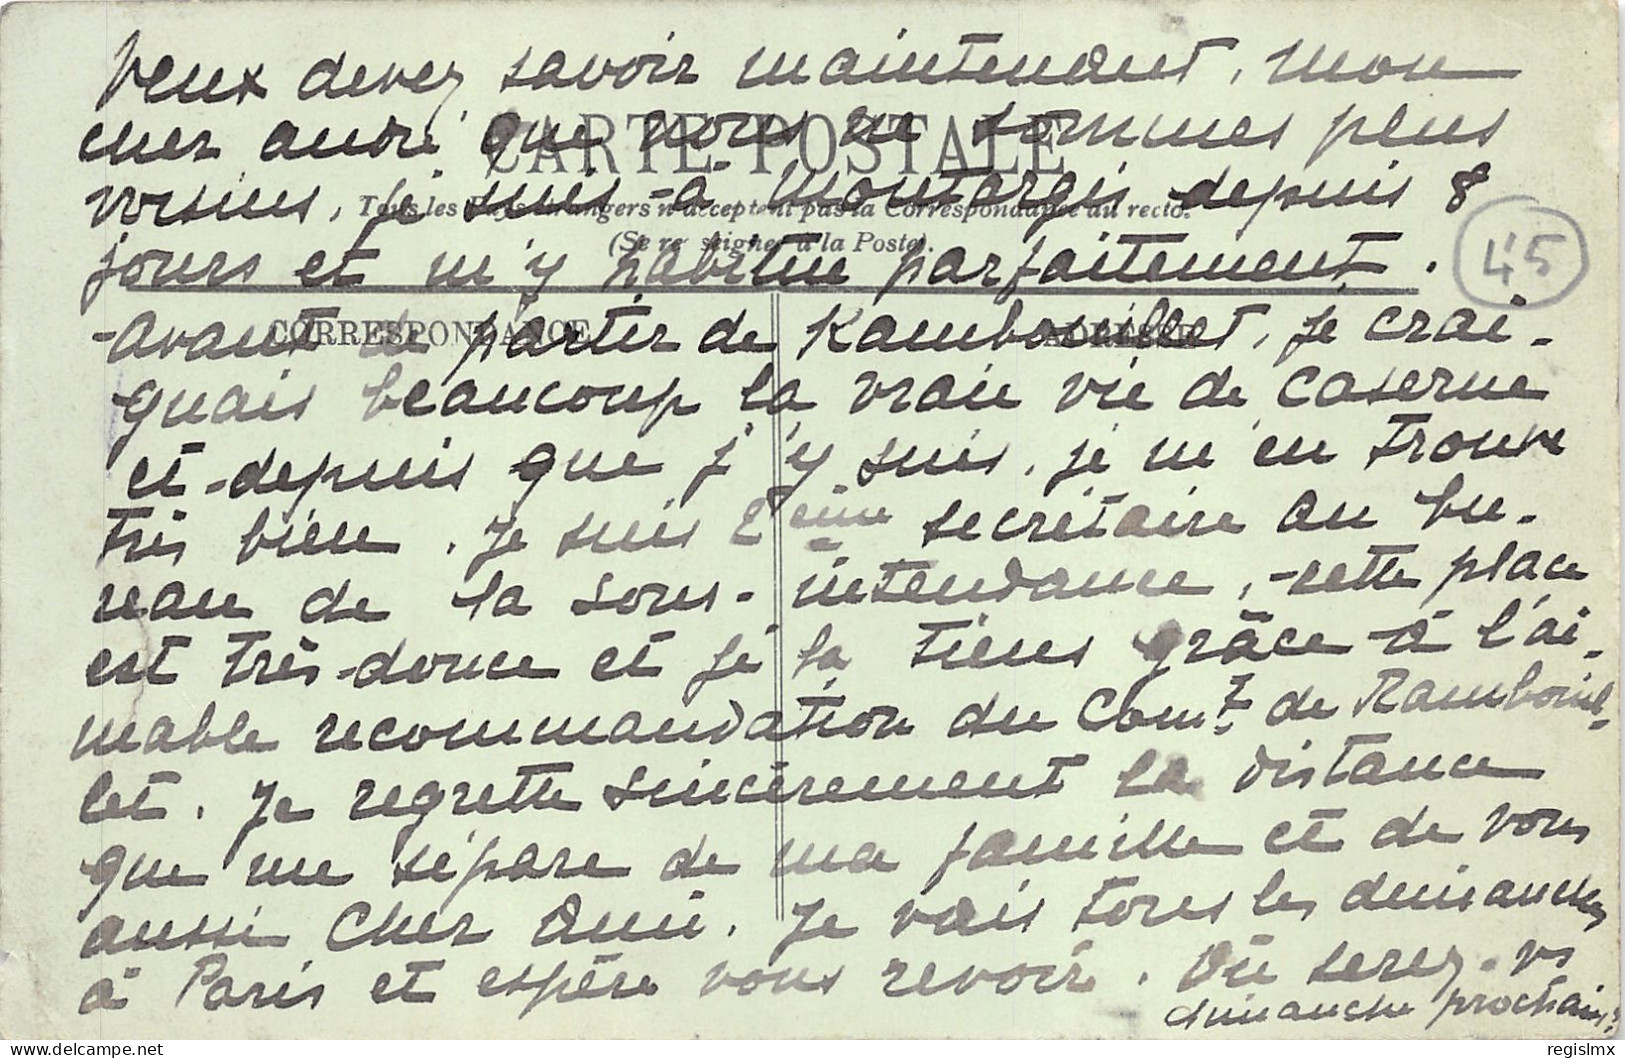 Veux devez savoir maintenant, mon
cher André que nous ne sommes plus
CARTE POSTALE
voisins, je suis à Montargis depuis 8
Tous les Pays étrangers n'acceptent pas la Correspondance au recto.
(Se renseigner à la Poste).
jours et m'y habitue parfaitement.
45
CORRESPONDANCE
ADRESSE
Avant de partir de Rambouillet, je crai-
gnais beaucoup la vraie vie de caserne
et depuis que j'y suis, je m'en trouve
très bien. Je suis 2ème secrétaire au bu-
reau de la sous-intendance, cette place
est très douce et je la tiens grâce à l'ai-
mable recommandation du Comt de Rambouil-
let. Je regrette sincèrement la distance
que me sépare de ma famille et de vous
aussi Cher Ami. Je vais tous les dimanches
à Paris et espère vous revoir. Où serez-vs
dimanche prochain?
delcampe.net
regislmx